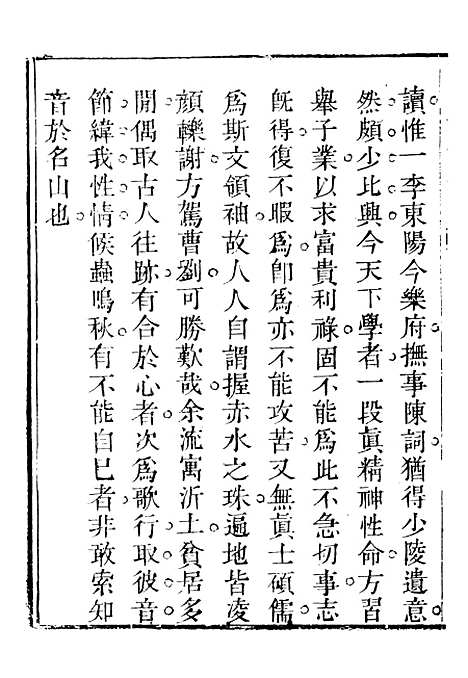 讀惟一李東陽今樂府撫事陳詞猶得少陵遺意
然頗少比興今天下學者一段眞精神性命方習
舉子業以求富貴利祿固不能爲此不急切事志
旣得復不暇爲卽爲亦不能攻苦又無眞士碩儒
爲斯文領袖故人人自謂握赤水之珠遍地皆凌
顔轢謝方駕曹劉可勝歎哉余流寓沂土貧居多
閒偶取古人往跡有合於心者次爲歌行取彼音
節緯我性情候蟲鳴秋有不能自已者非敢索知
音於名山也